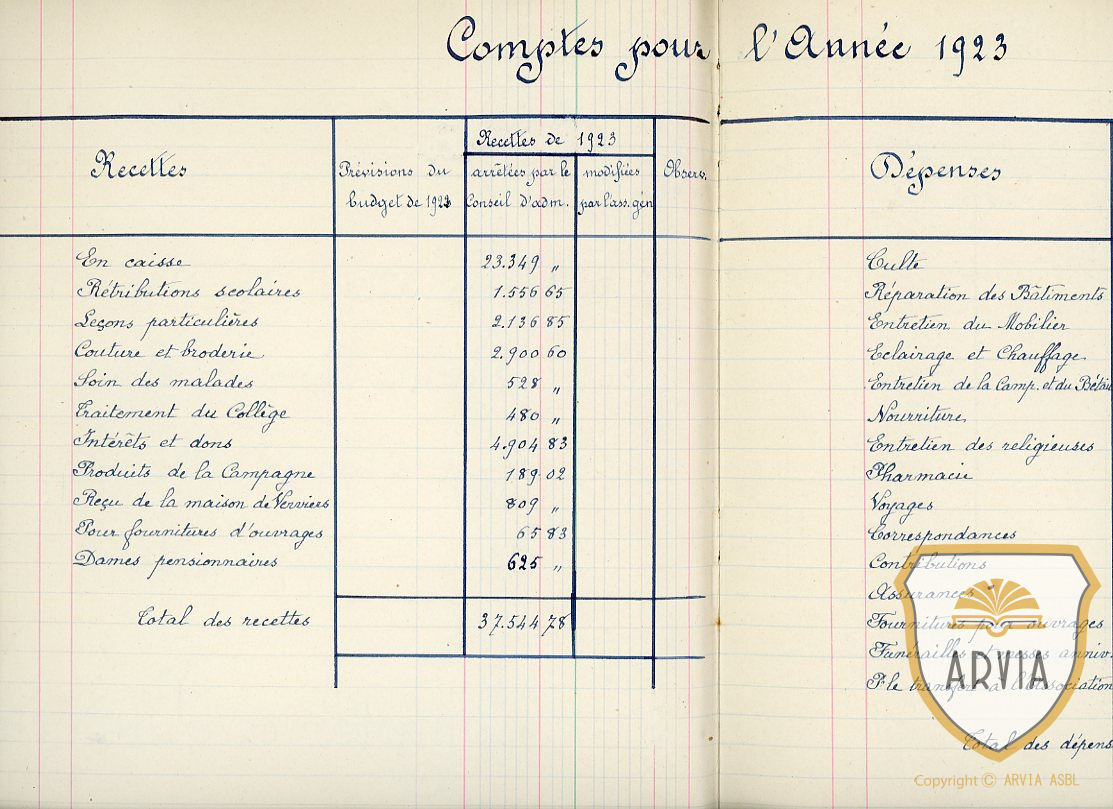 Comptes pour l'Année 1923
Recettes
Prévisions du
budget de 1923
Recettes de 1923
arrêtées par le
Conseil d'adm.
modifiées
par l'ass. gén
Observ.
En caisse 23.349 „
Rétributions scolaires 1.556 65
Leçons particulières 2.136 85
Couture et broderie 2.900 60
Soin des malades 528 „
Traitement du Collège 480 „
Intérêts et dons 4.904 83
Produits de la Campagne 189 02
Reçu de la maison de Verviers 809 „
Pour fournitures d'ouvrages 65 83
Dames pensionnaires 625 „
Total des recettes 37.544 78
Dépenses
Culte
Réparation des Bâtiments
Entretien du Mobilier
Eclairage et Chauffage
Entretien de la Camp. et du Bétail
Nourriture
Entretien des religieuses
Pharmacie
Voyages
Correspondances
Contributions
Assurances
Fournitures pour ouvrages
Funérailles et messes anniv.
P. le transfert à l'Association
Total des dépens
ARVIA
Copyright © ARVIA ASBL